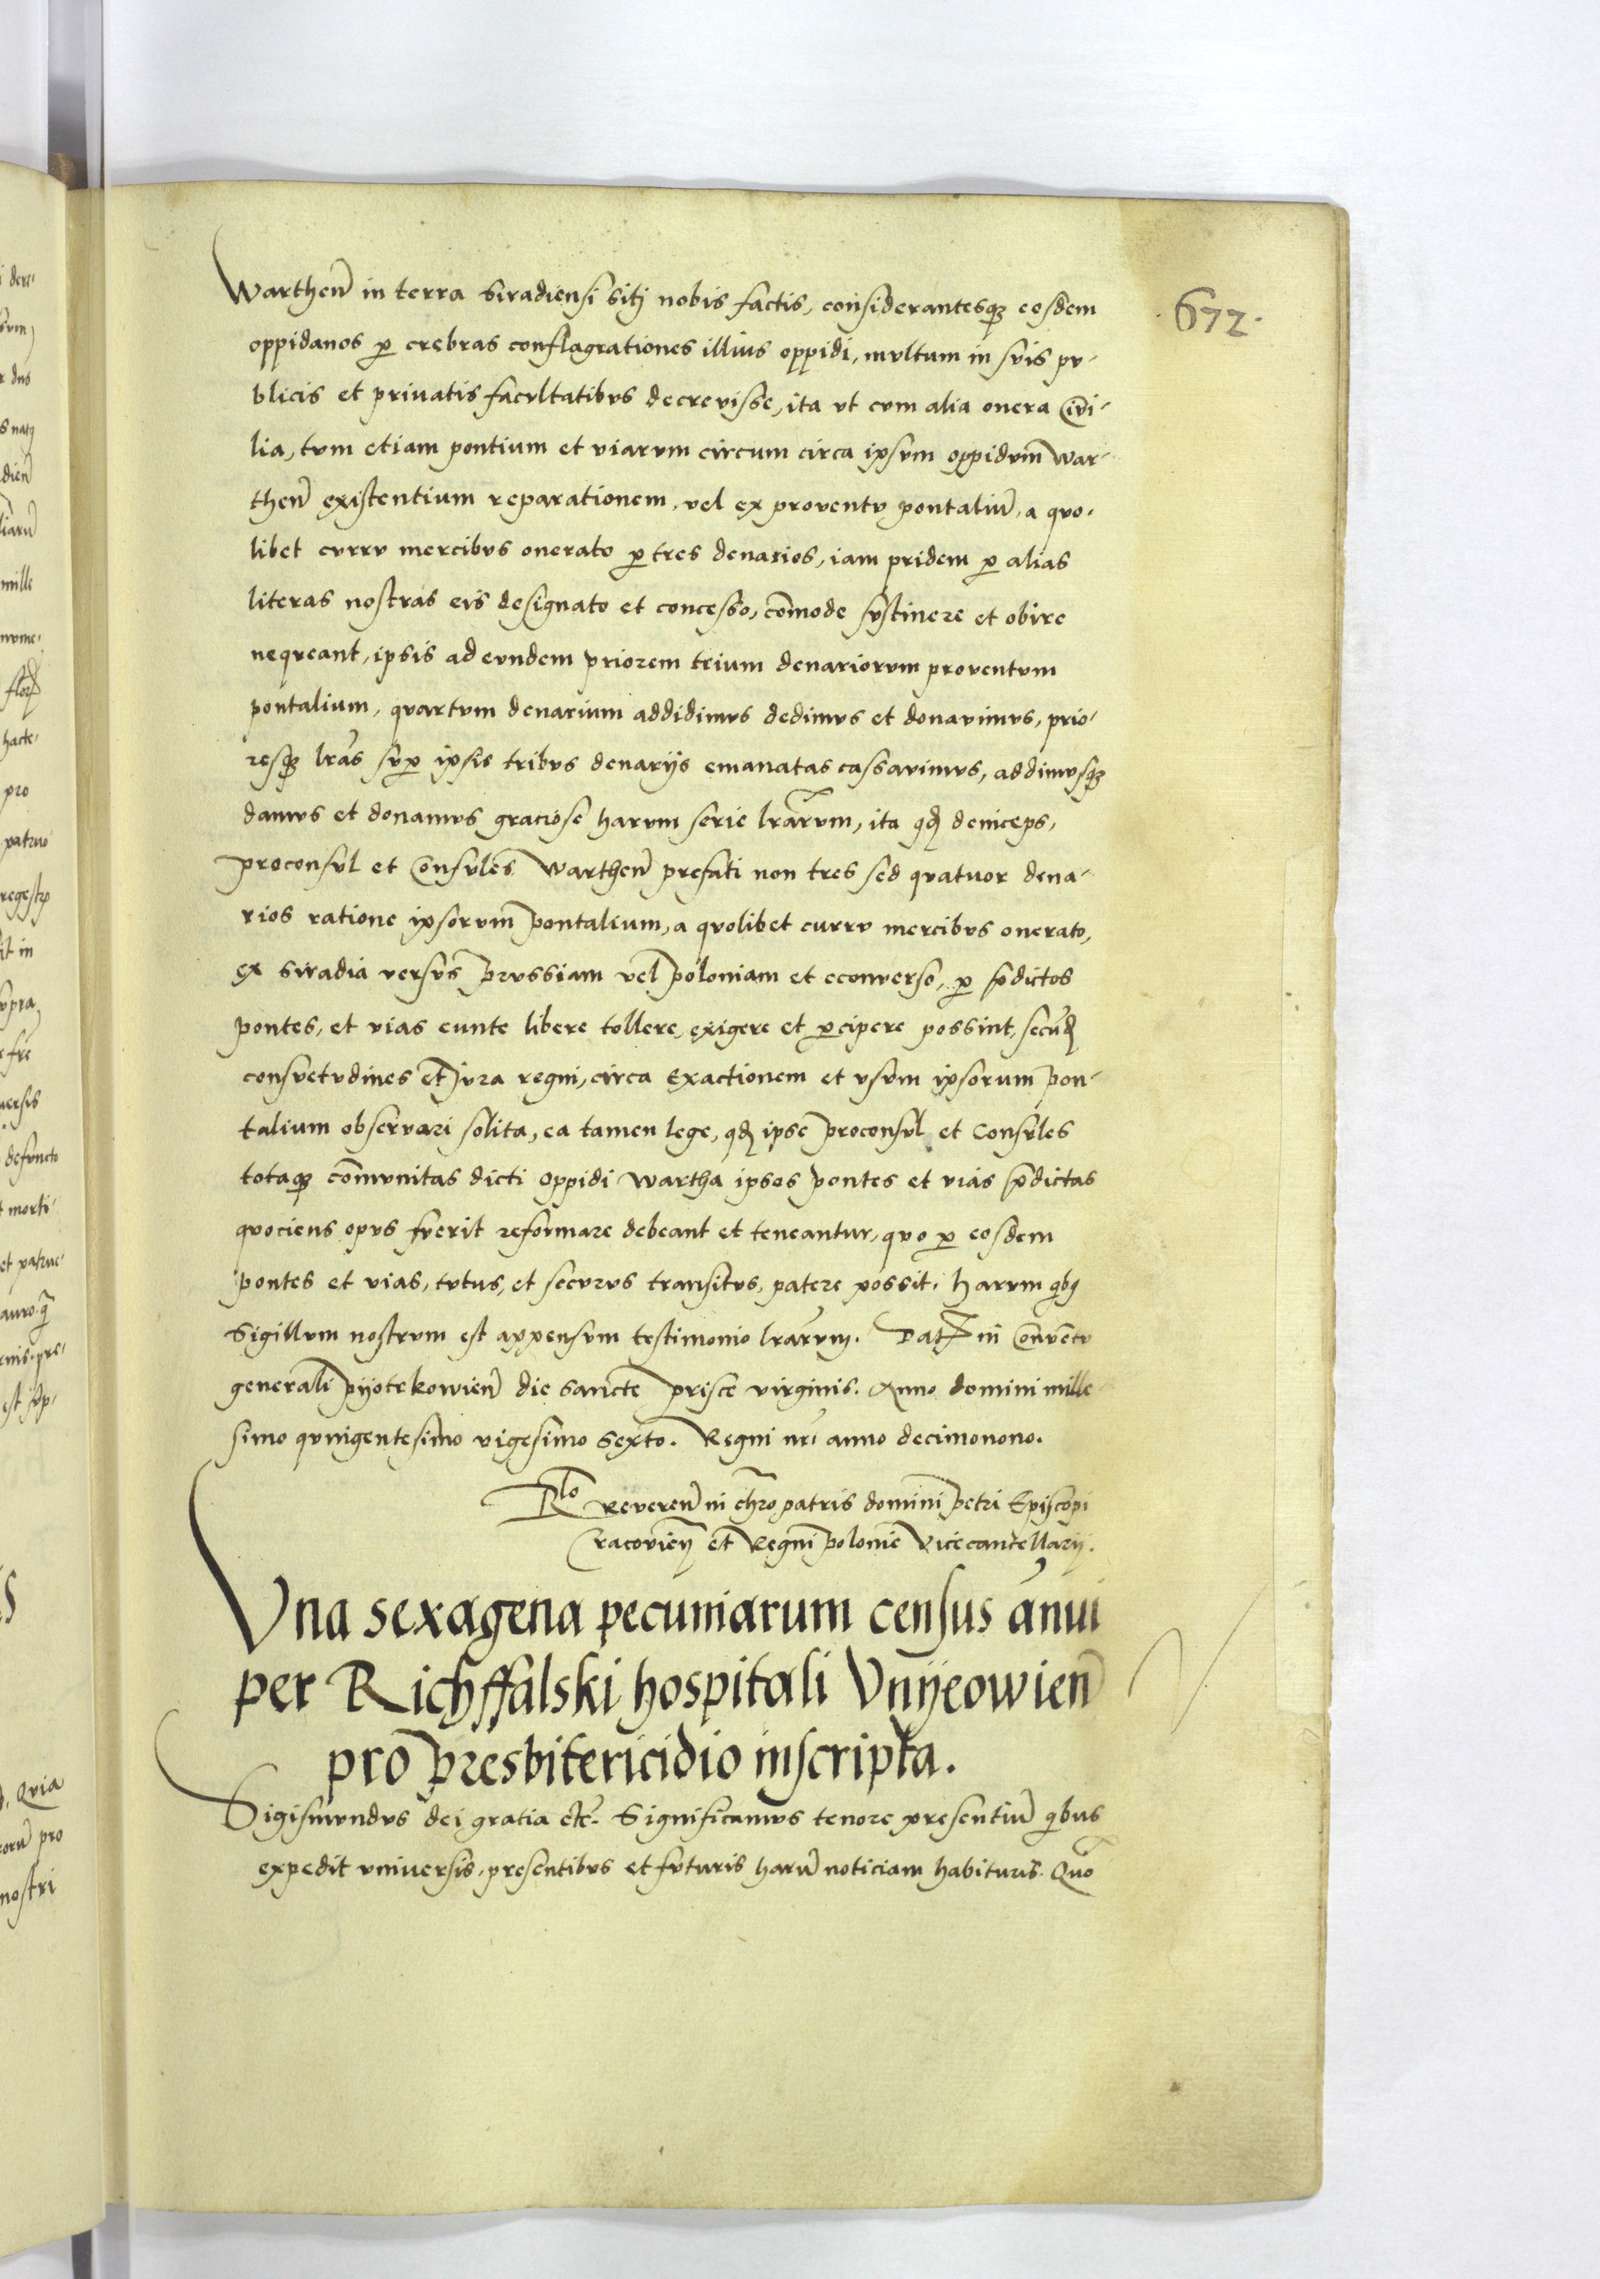 672.
Warthen̄ in terra Siradiensi sitj nobis factis, considerantesqꝫ eosdem
oppidanos ꝑ crebras conflagrationes illius oppidi, mvltum in svis pv-
blicis et priuatis facvltatibvs decrevisse, ita vt cvm alia onera Ciui-
lia, tvm etiam pontium et viarvm circum circa ipsvm oppidvm̄ War-
then̄ existentium reparationem, vel ex proventv pontaliū, a qvo-
libet cvrrv mercibvs onerato ꝑ tres denarios, iam pridem ꝑ alias
literas nostras eis designato et concesso, com̄ode svstinere et obire
neqveant, ipsis ad evndem priorem trium denariorvm proventvm
pontalium, qvartvm denarium addidimvs dedimvs et donavimvs, prio-
resqꝫ lr̄as svꝑ ipsis tribvs denarijs emanatas cassavimvs, addimvsqꝫ
damvs et donamvs graciose harvm serie lr̄arvm, ita qđ deniceps,
proconsvl et Consvles Warthen̄ prefati non tres sed qvatvor dena-
rios ratione ipsorvm̄ pontalium, a qvolibet currv mercibvs onerato,
ex Siradia versvs prvssiam vel poloniam et econverso, ꝑ p̄dictos
pontes, et vias eunte libere tollere, exigere et ꝑcipere possint, secūd
consvetvdines et jvra regni, circa exactionem et vsvm ipsorum pon-
talium observari solita, ea tamen lege, qđ ipse proconsvl et Consvles
totaqꝫ com̄vnitas dicti oppidi Wartha ipsos pontes et vias p̄dictas
qvociens opvs fverit reformare debeant et teneantur, qvo ꝑ eosdem
pontes et vias, tvtus, et secvrvs transitvs, patere possit. harvm qibꝯ
Sigillvm nostrvm est appensvm testimonio lr̄arvm. Datꝝ in Conventv
generali pyotrkowien̄ die sancte prisce virginis. Anno domini mille-
simo qvnigentesimo vigesimo sexto. Regni nr̄i anno decimonono.
Rlo Reveren̄ in chr̄o patris domini petri Episcopi
Cracovien̄ et Regni polonie Vicecancellarij.
Vna sexagena pecuniarum census ānui
per Richffalski hospitali Vnijeowien̄
pro presbitericidio inscripta.
Sigismvndvs dei gratia etc̄. Significamvs tenore presentiū qibus
expedit vniversis, presentibvs et fvturis harū noticiam habituris. Quō